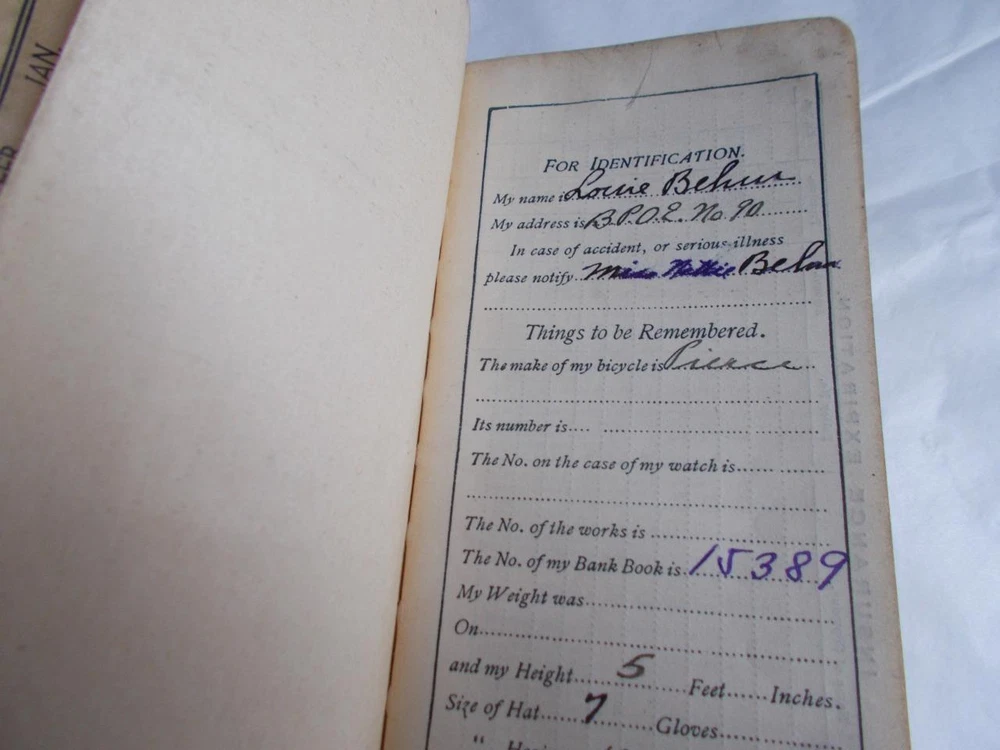 JAN.
FOR IDENTIFICATION.
My name is Louie Behm
My address is B.P.O.E. No. 90
In case of accident, or serious illness
please notify Miss Nettie Behm
Things to be Remembered.
The make of my bicycle is Pierce
Its number is
The No. on the case of my watch is
The No. of the works is
The No. of my Bank Book is 15389
My Weight was
On
and my Height 5 Feet Inches.
Size of Hat 7 Gloves
INSURANCE EXPIRATION